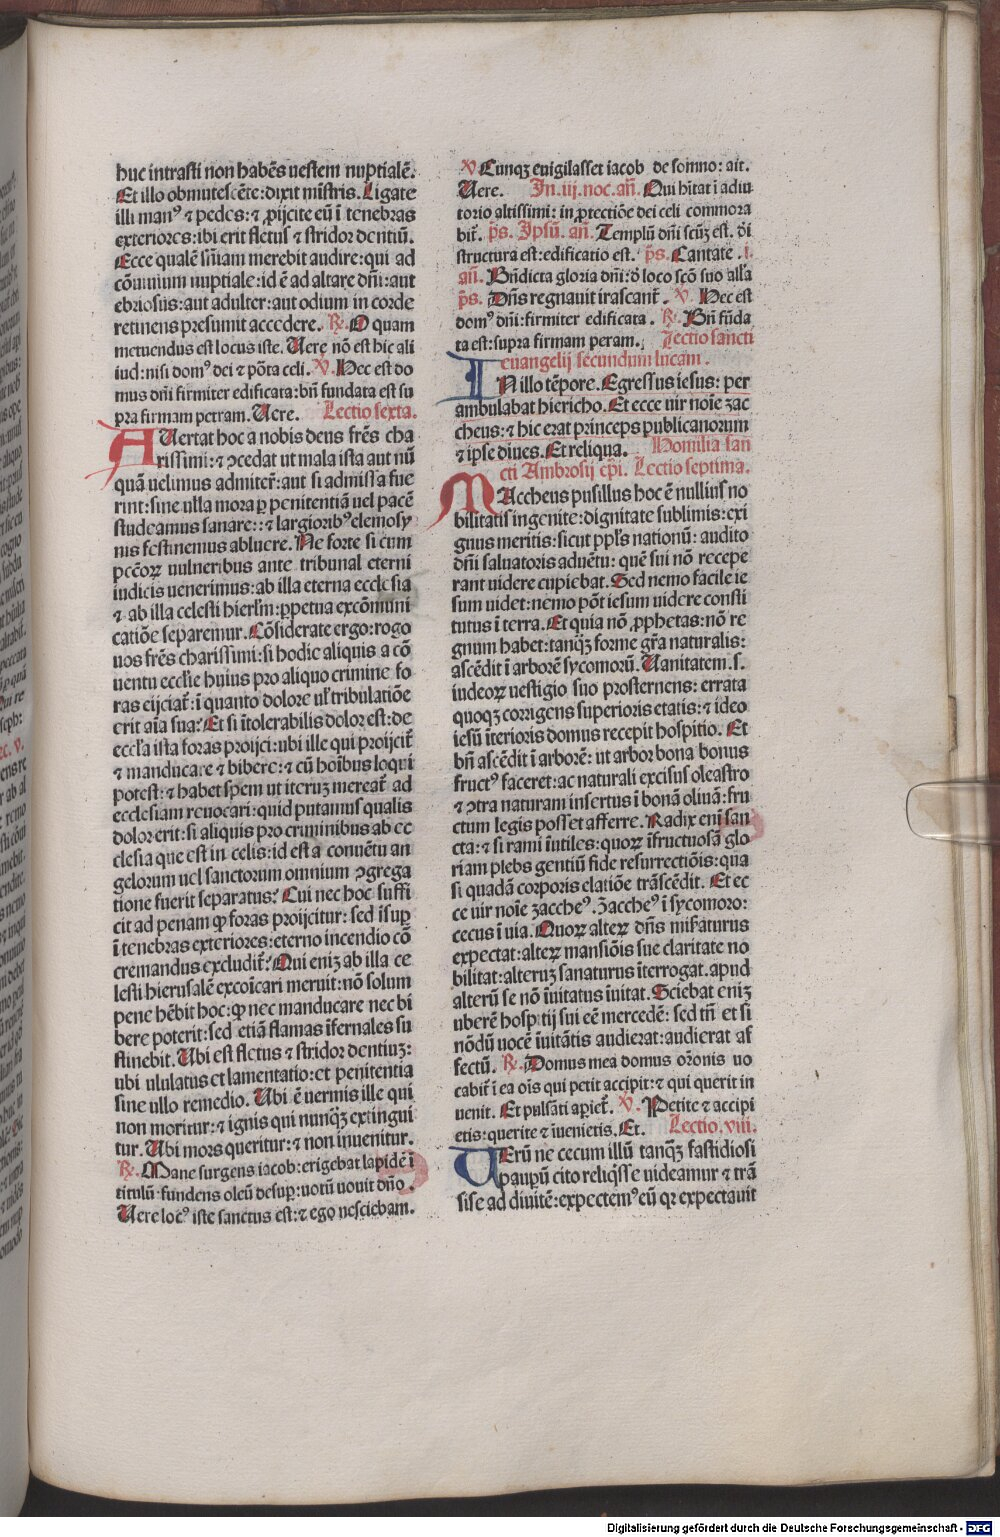 huc intrasti non habēs uestem nuptialē.
Et illo obmutescēte: dixit mīstris. Ligate
illi manꝰ ⁊ pedes: ⁊ ꝓijcite eū ī tenebras
exteriores: ibi erit fletus ⁊ stridor dentiū.
Ecce qualē sn̄iam merebit audire: qui ad
cōuiuium nuptiale: id ē ad altare dn̄i: aut
ebriosus: aut adulter: aut odium in corde
retinens presumit accedere. ℟. O quam
metuendus est locus iste. Uere nō est hic ali
iud: nisi domꝰ dei ⁊ pōta celi. ℣. Hec est do
mus dn̄i firmiter edificata: bn̄ fundata est su
pra firmam petram. Uere. Lectio sexta.
AUertat hoc a nobis deus fr̄es cha
rissimi: ⁊ ꝯcedat ut mala ista aut nū
quā uelimus admitter̄: aut si admissa fue
rint: sine ulla mora ꝑ penitentiā uel pacē
studeamus sanare: ⁊ largioribꝰ elemosy
nis festinemus abluere. Ne forte si cum
pccōꝝ uulneribus ante tribunal eterni
iudicis uenerimus: ab illa eterna ecclesia
⁊ ab illa celesti hierl̄m: ꝑpetua excōmuni
catiōe separemur. Cōsiderate ergo: rogo
uos fr̄es charissimi: si hodie aliquis a cō
uentu eccl̄ie huius pro aliquo crimine fo
ras eijciat᷑: ī quanto dolore ul̄ tribulatiōe
erit aīa sua? Et si ītolerabilis dolor est: de
eccl̄ia ista foras proijci: ubi ille qui proijcit᷑
⁊ manducare ⁊ bibere: ⁊ cū hoībus loqui
potest: ⁊ habet spem ut iteruꝫ mereat᷑ ad
ecclesiam reuocari: quid putamus qualis
dolor erit: si aliquis pro criminibus ab ec
clesia que est in celis: id est a conuētu an
gelorum uel sanctorum omnium ꝯgrega
tione fuerit separatus? Cui nec hoc suffi
cit ad penam ꝙ foras proijcitur: sed īsup
ī tenebras exteriores: eterno incendio cō
cremandus excludit᷑? Qui eniꝫ ab illa ce
lesti hierusalē excoīcari meruit: nō solum
pene hēbit hoc: ꝙ nec manducare nec bi
bere poterit: sed etiā flamas īfernales su
stinebit. Ubi est fletus ⁊ stridor dentiuꝫ:
ubi ululatus et lamentatio: et penitentia
sine ullo remedio. Ubi ē uermis ille qui
non moritur: ⁊ ignis qui nunqꝫ extingui
tur. Ubi mors queritur: ⁊ non inuenitur.
℟. Mane surgens iacob: erigebat lapidē ī
titulū fundens oleū desup: uotū uouit dn̄o.
Uere locꝰ iste sanctus est: ⁊ ego nesciebam.
℣. Cunqꝫ euigilasset iacob de somno: ait.
Uere. In .iij. noc. an̄. Qui hītat ī adiu
torio altissimi: in ꝓtectiōe dei celi commora
bit᷑. ps̄. Ipsū. an̄. Templū dn̄i scūꝫ est. dei
structura est: edificatio est. ps̄. Cantate .i.
an̄. Bn̄dicta gloria dn̄i: de loco scō suo all'a
ps̄. Dn̄s regnauit irascant᷑. ℣. Hec est
domꝰ dn̄i: firmiter edificata. ℟. Bn̄ fūda
ta est: supra firmam petram. Lectio sancti
euangelij secundum lucam.
IN illo tēpore. Egressus iesus: per
ambulabat hiericho. Et ecce uir noīe zac
cheus: ⁊ hic erat princeps publicanorum
⁊ ipse diues. Et reliqua. Homilia san
cti Ambrosij ep̄i. Lectio septima.
MAccheus pusillus hoc ē nullius no
bilitatis ingenite: dignitate sublimis: exi
guus meritis: sicut ppl̄s nationū: audito
dn̄i saluatoris aduētu: quē sui nō recepe
rant uidere cupiebat. Sed nemo facile ie
sum uidet: nemo pōt iesum uidere consti
tutus ī terra. Et quia nō ꝓphetas: nō re
gnum habet: tanqꝫ forme gr̄a naturalis:
ascēdit ī arborē sycomorū. Uanitatem .s.
iudeoꝝ uestigio suo prosternens: errata
quoqꝫ corrigens superioris etatis: ⁊ ideo
iesū īterioris domus recepit hospitio. Et
bn̄ ascēdit ī arborē: ut arbor bona bonus
fructꝰ faceret: ac naturali excisus oleastro
⁊ ꝯtra naturam insertus ī bonā oliuā: fru
ctum legis posset afferre. Radix enī san
cta: ⁊ si rami īutiles: quoꝝ īfructuosā glo
riam plebs gentiū fide resurrectiōis: qua
si quadā corporis elatiōe trāscēdit. Et ec
ce uir noīe zaccheꝰ. Zaccheꝰ ī sycomoro:
cecus ī uia. Quoꝝ alteꝝ dn̄s miseraturus
expectat: alteꝝ mansiōis sue claritate no
bilitat: alteruꝫ sanaturus īterrogat. apud
alterū se nō īuitatus īuitat. Sciebat eniꝫ
uberē hospitij sui eē mercedē: sed tn̄ et si
nōdū uocē īuitātis audierat: audierat af
fectū. ℟. Domus mea domus or̄onis uo
cabit᷑ ī ea oīs qui petit accipit: ⁊ qui querit in
uenit. Et pulsāti apiet᷑. ℣. Petite ⁊ accipi
etis: querite ⁊ īuenietis. Et. Lectio .viii.
UErū ne cecum illū tanqꝫ fastidiosi
paupꝝ cito reliqīsse uideamur ⁊ trā
sise ad diuitē: expectemꝰ eū qr expectauit
Digitalisierung gefördert durch die Deutsche Forschungsgemeinschaft - DFG